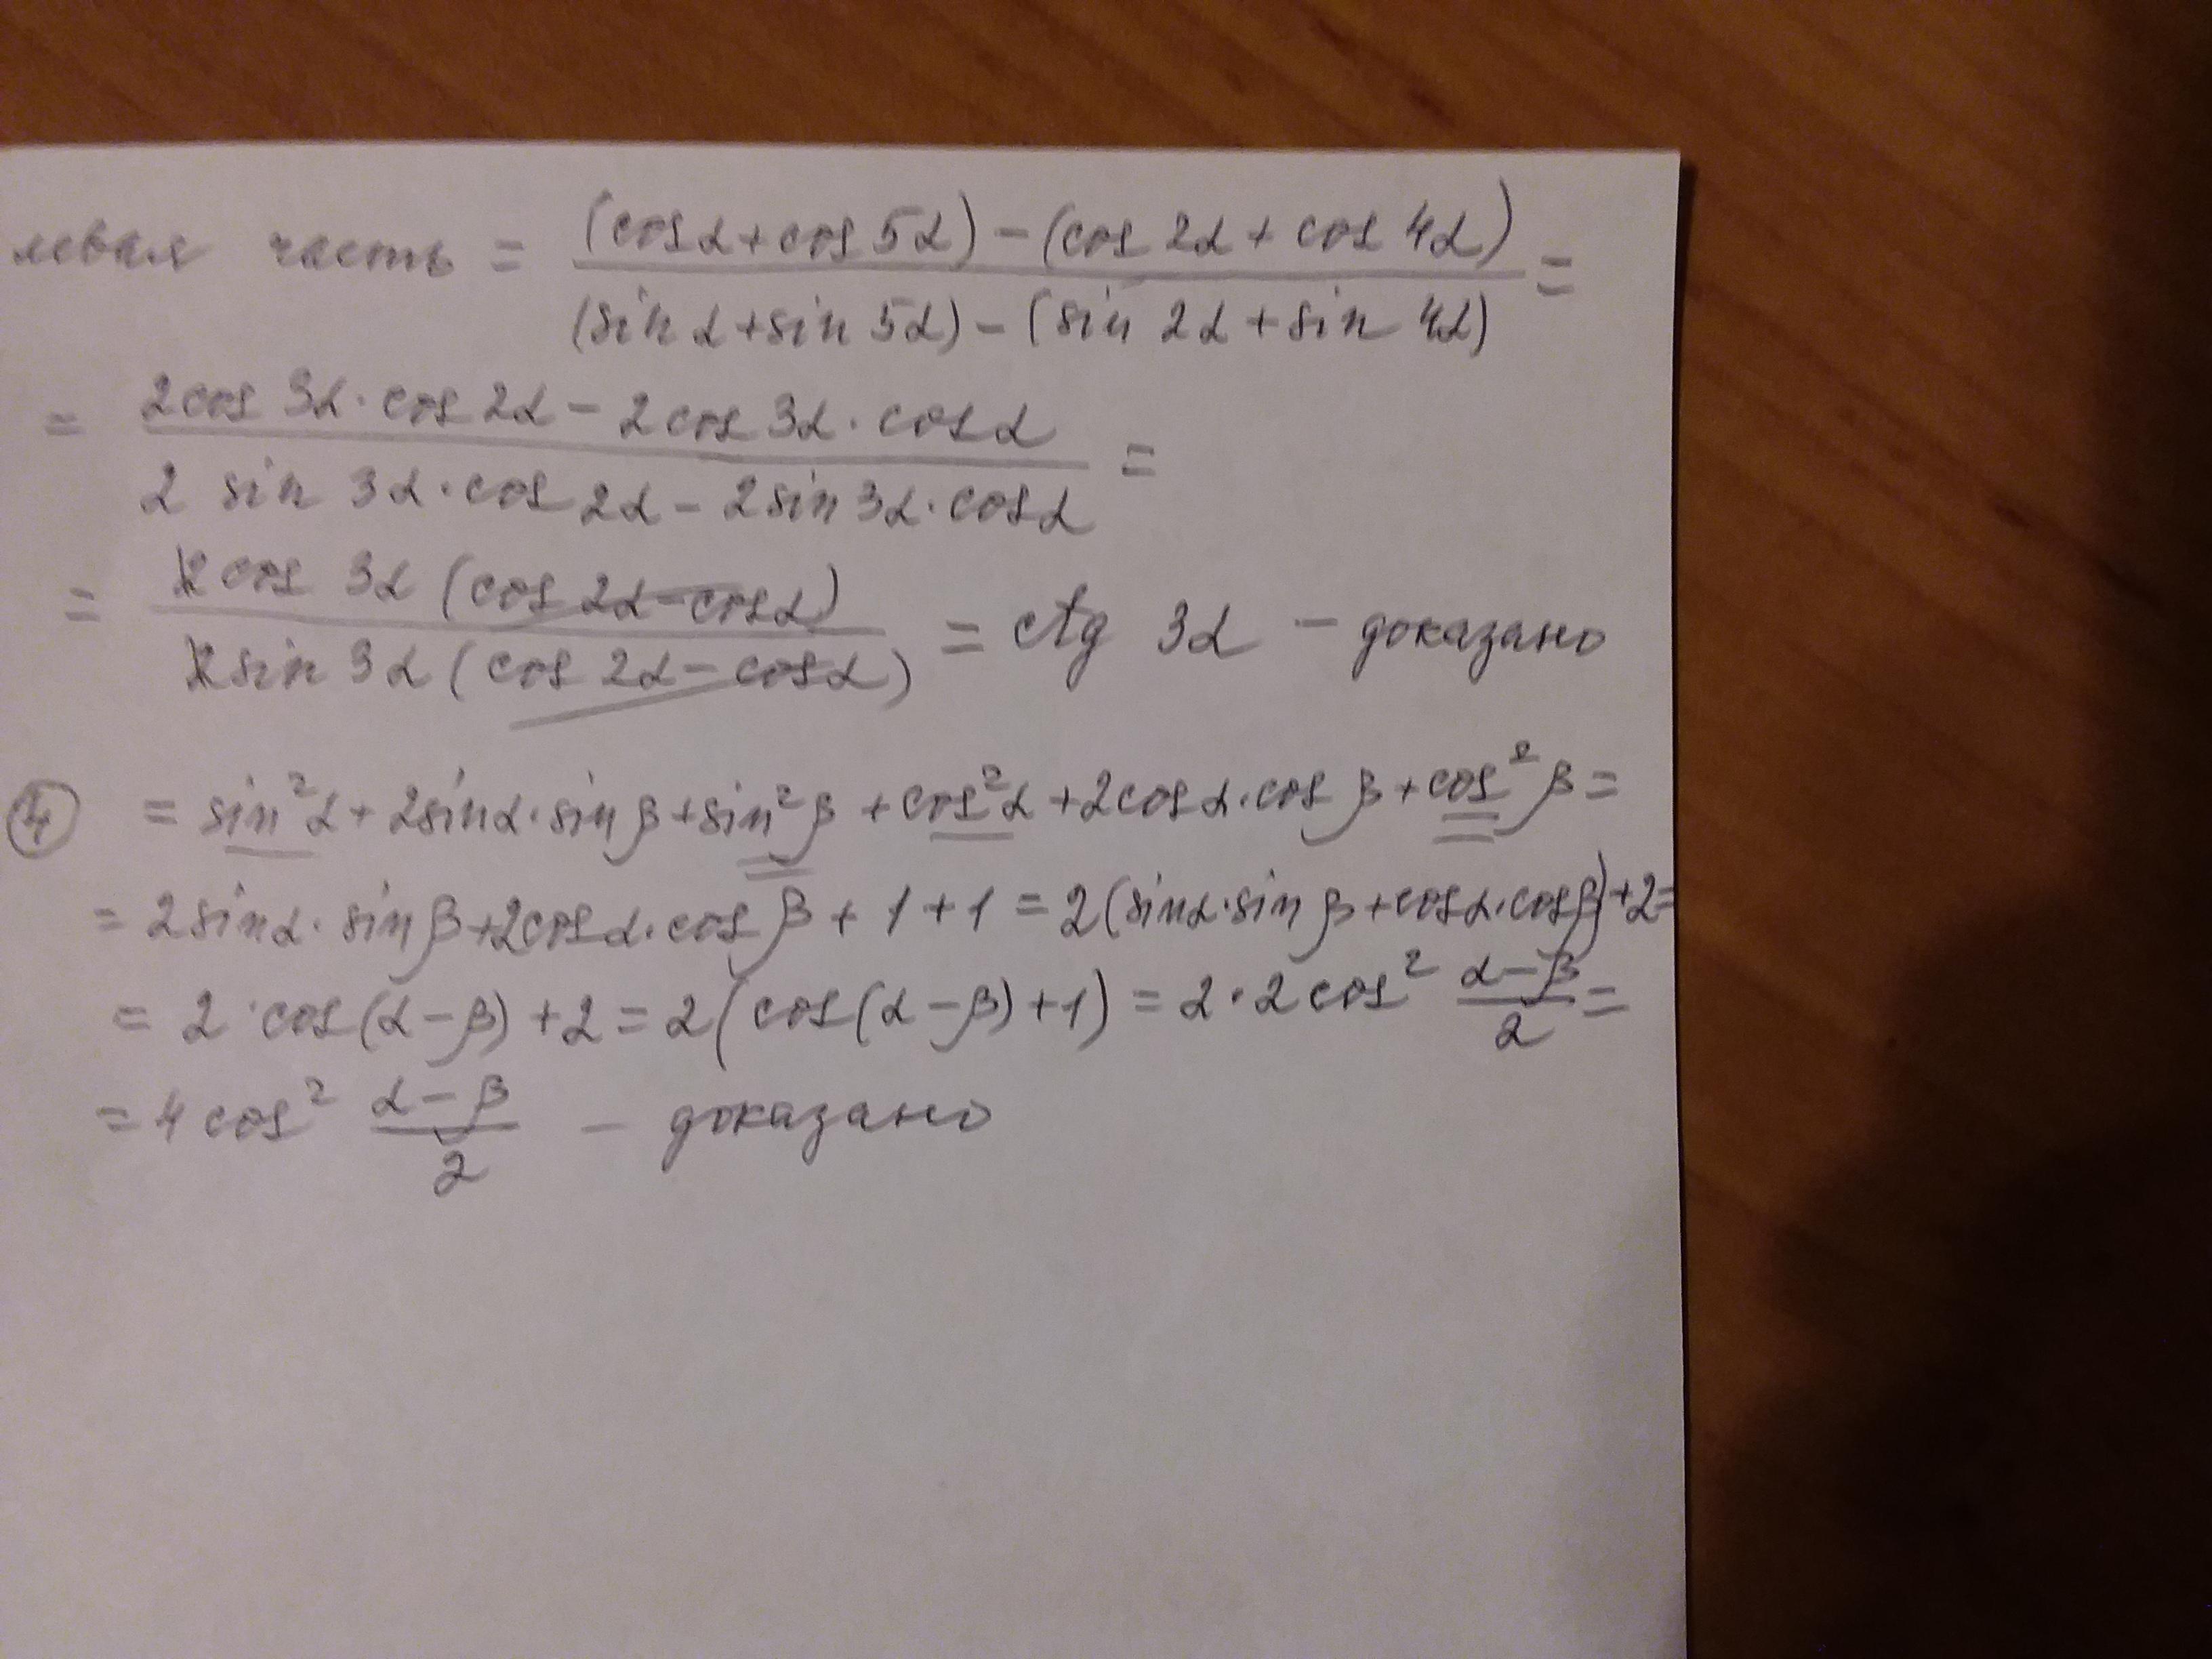 левая часть = ((cosα + cos 5α) − (cos 2α + cos 4α)) / ((sin α + sin 5α) − (sin 2α + sin 4α)) =
= (2cos 3α · cos 2α − 2cos 3α · cosα) / (2 sin 3α · cos 2α − 2sin 3α · cosα) =
= (2cos 3α (cos 2α − cosα)) / (2sin 3α (cos 2α − cosα)) = ctg 3α − доказано
④ = sin²α + 2sinα · sin β + sin²β + cos²α + 2cosα · cos β + cos²β =
= 2sinα · sin β + 2cosα · cos β + 1 + 1 = 2(sinα · sin β + cosα · cosβ) + 2 =
= 2 · cos(α − β) + 2 = 2(cos(α − β) + 1) = 2 · 2cos² (α − β)/2 =
= 4 cos² (α − β)/2 − доказано